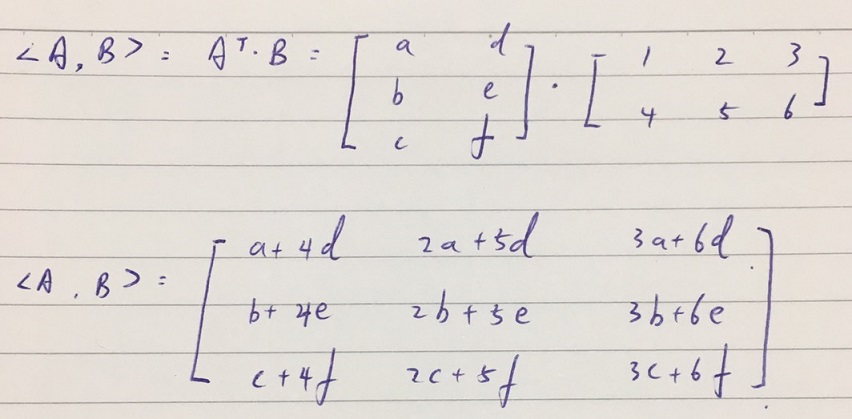 <A, B> = Aᵀ · B = [ a d ; b e ; c f ] · [ 1 2 3 ; 4 5 6 ]
<A, B> = [ a+4d 2a+5d 3a+6d ; b+4e 2b+5e 3b+6e ; c+4f 2c+5f 3c+6f ]